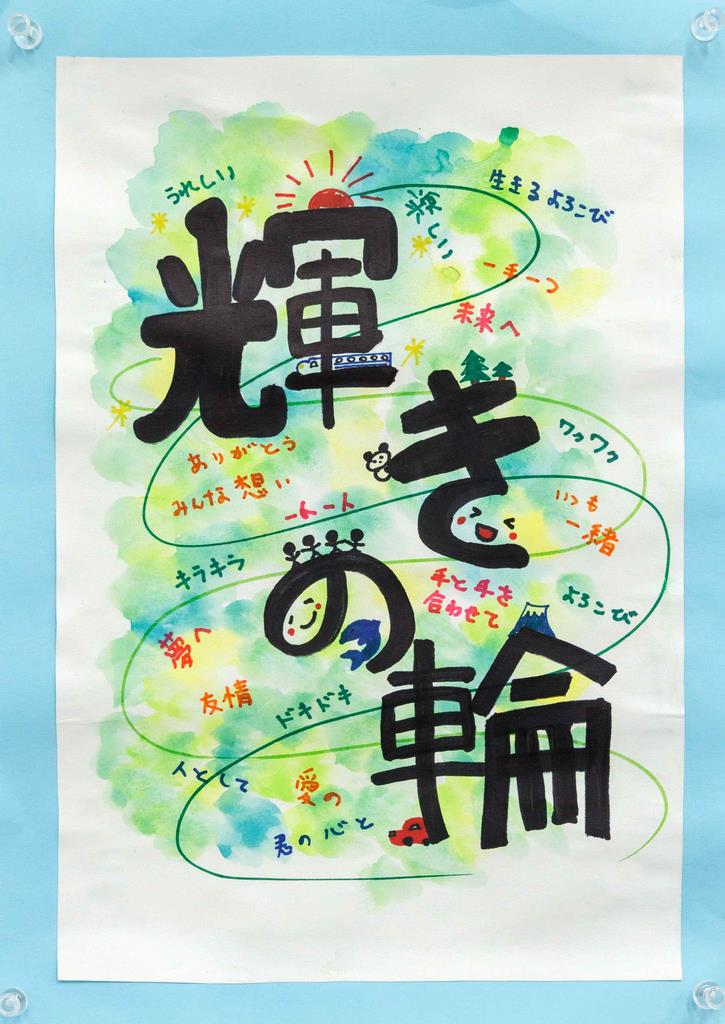 うれしい
生きるよろこび
一手一つ
未来へ
輝きの輪
ワクワク
ありがとう
みんな想い
いつも
一緒
キラキラ
手と手を
合わせて
よろこび
夢へ
友情
ドキドキ
人として
愛の
君の心と